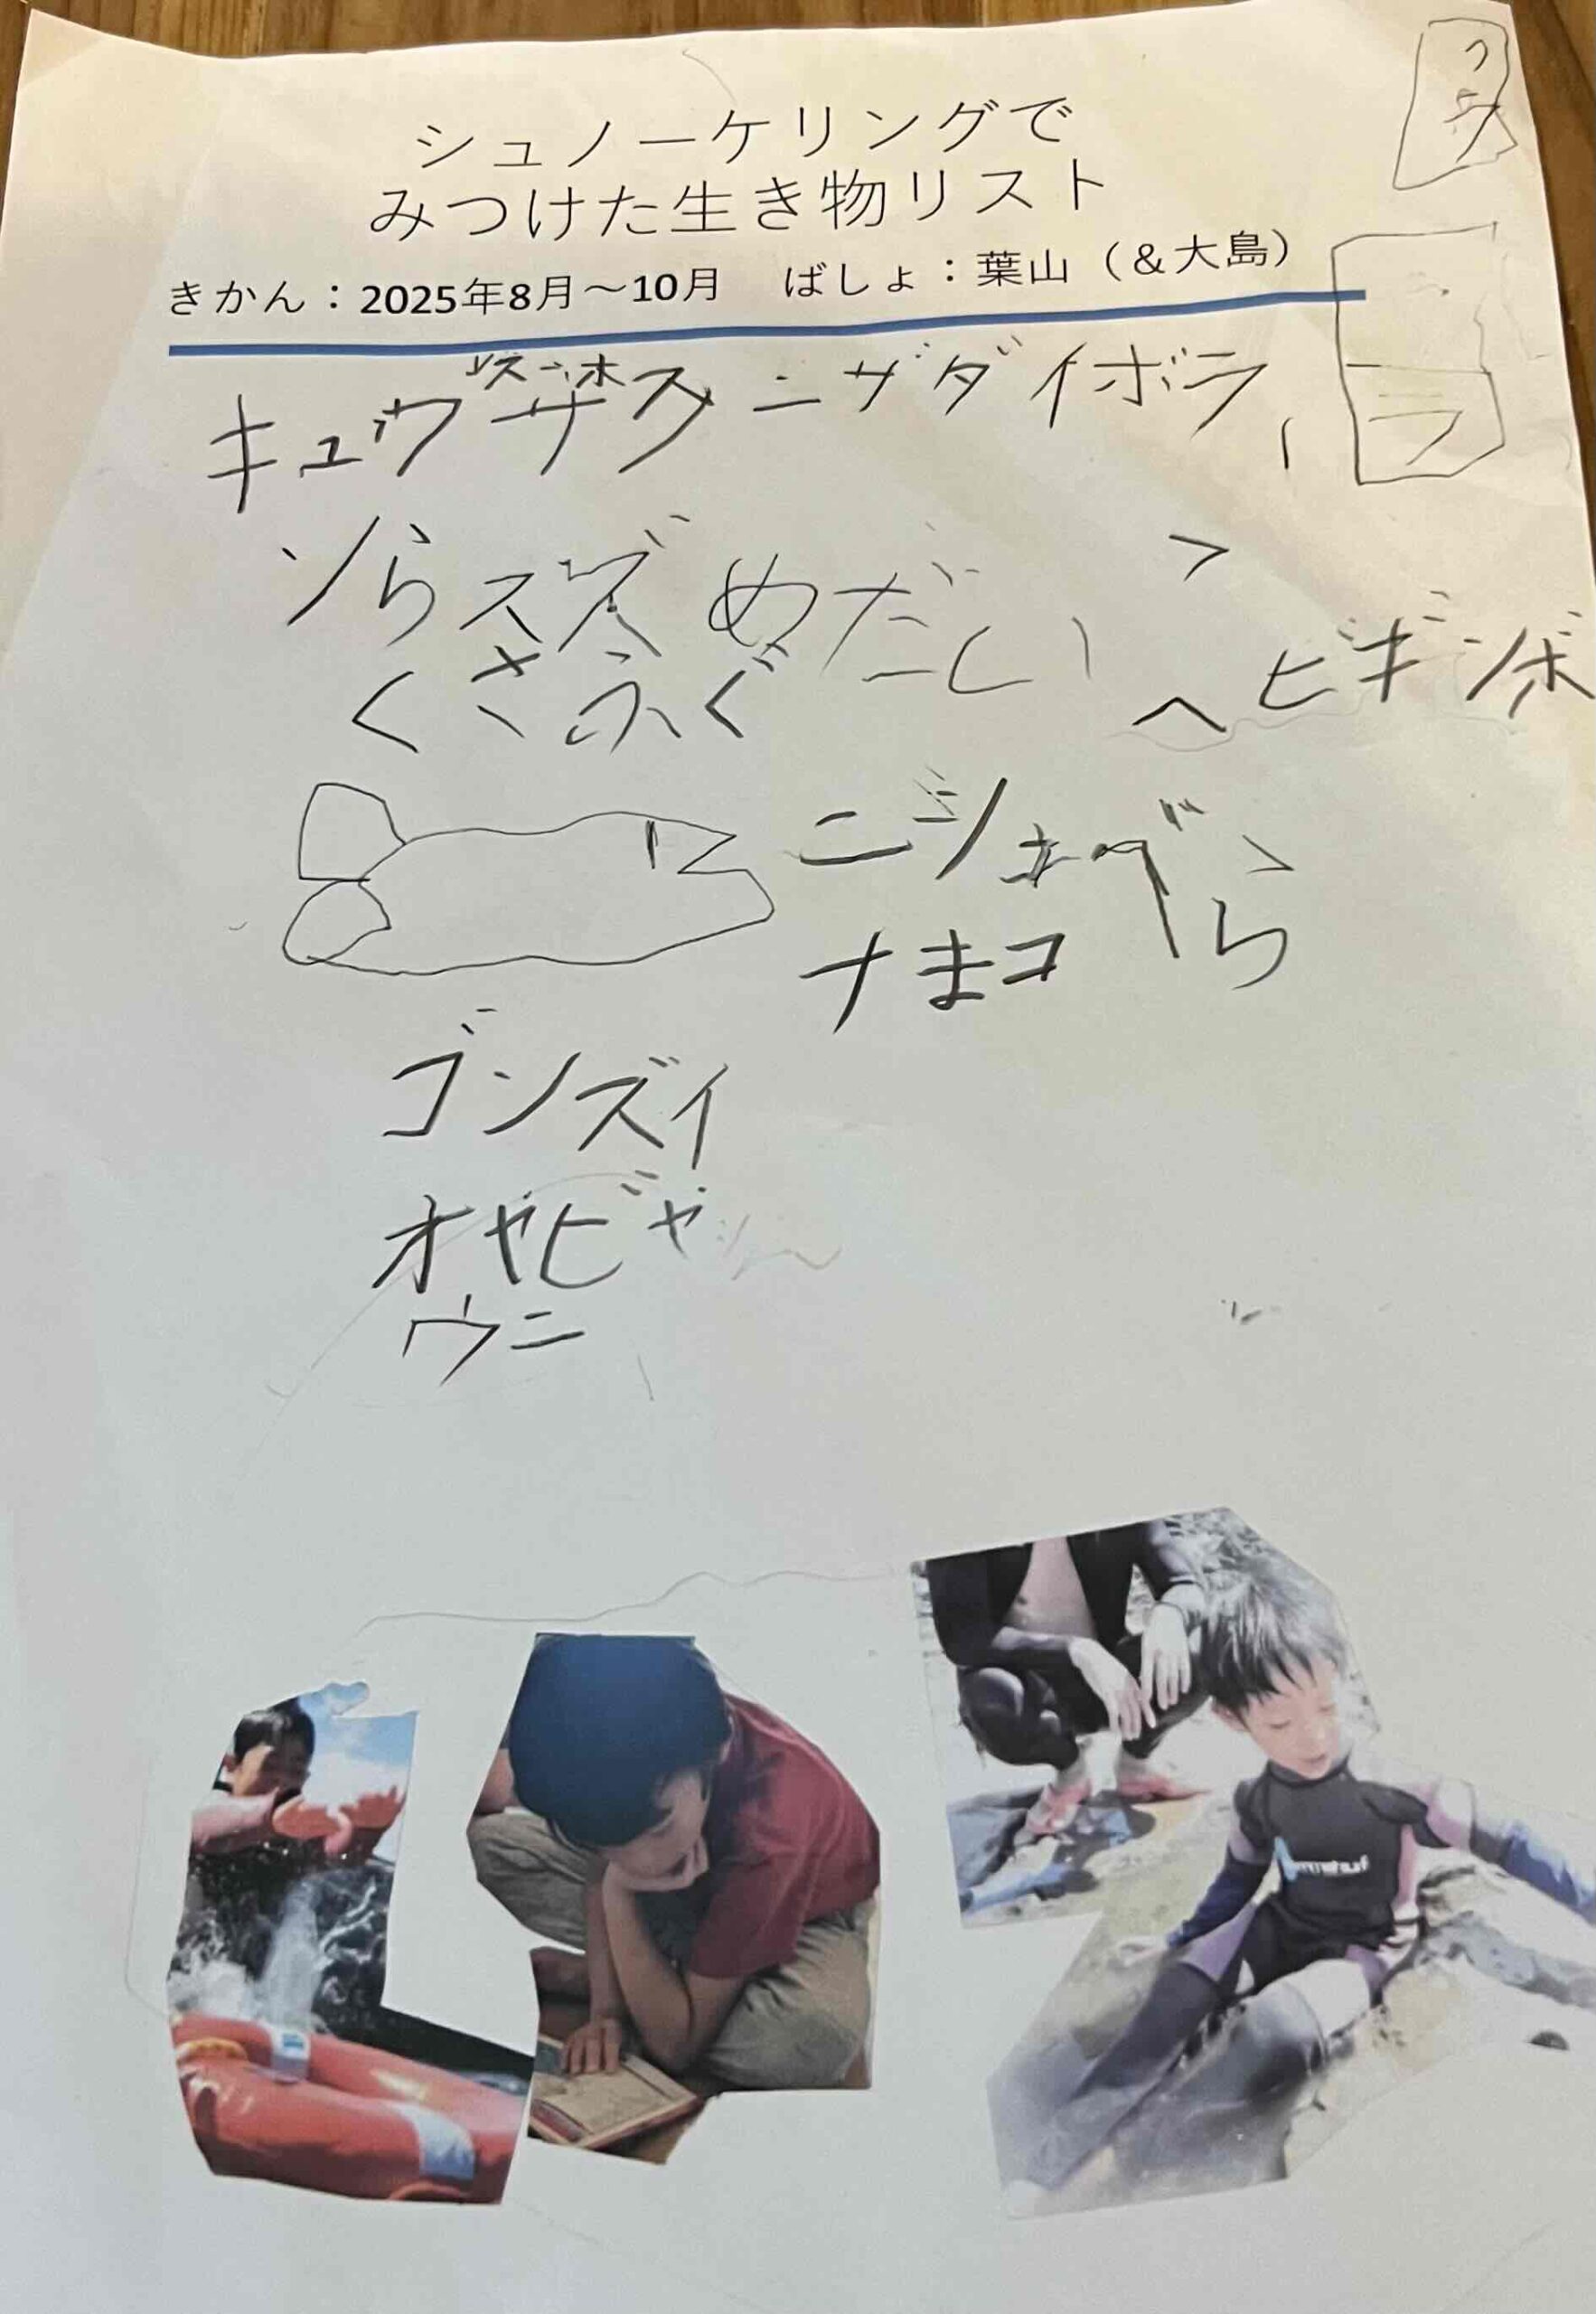 シュノーケリングで
みつけた生き物リスト
きかん：2025年8月～10月　ばしょ：葉山（＆大島）
キュウ
ニザダイボラ
ソらスズめだい
くさふぐ
ヘビギンポ
ニジ
べら
ナまコ
ゴンズイ
オヤビャ
ウニ